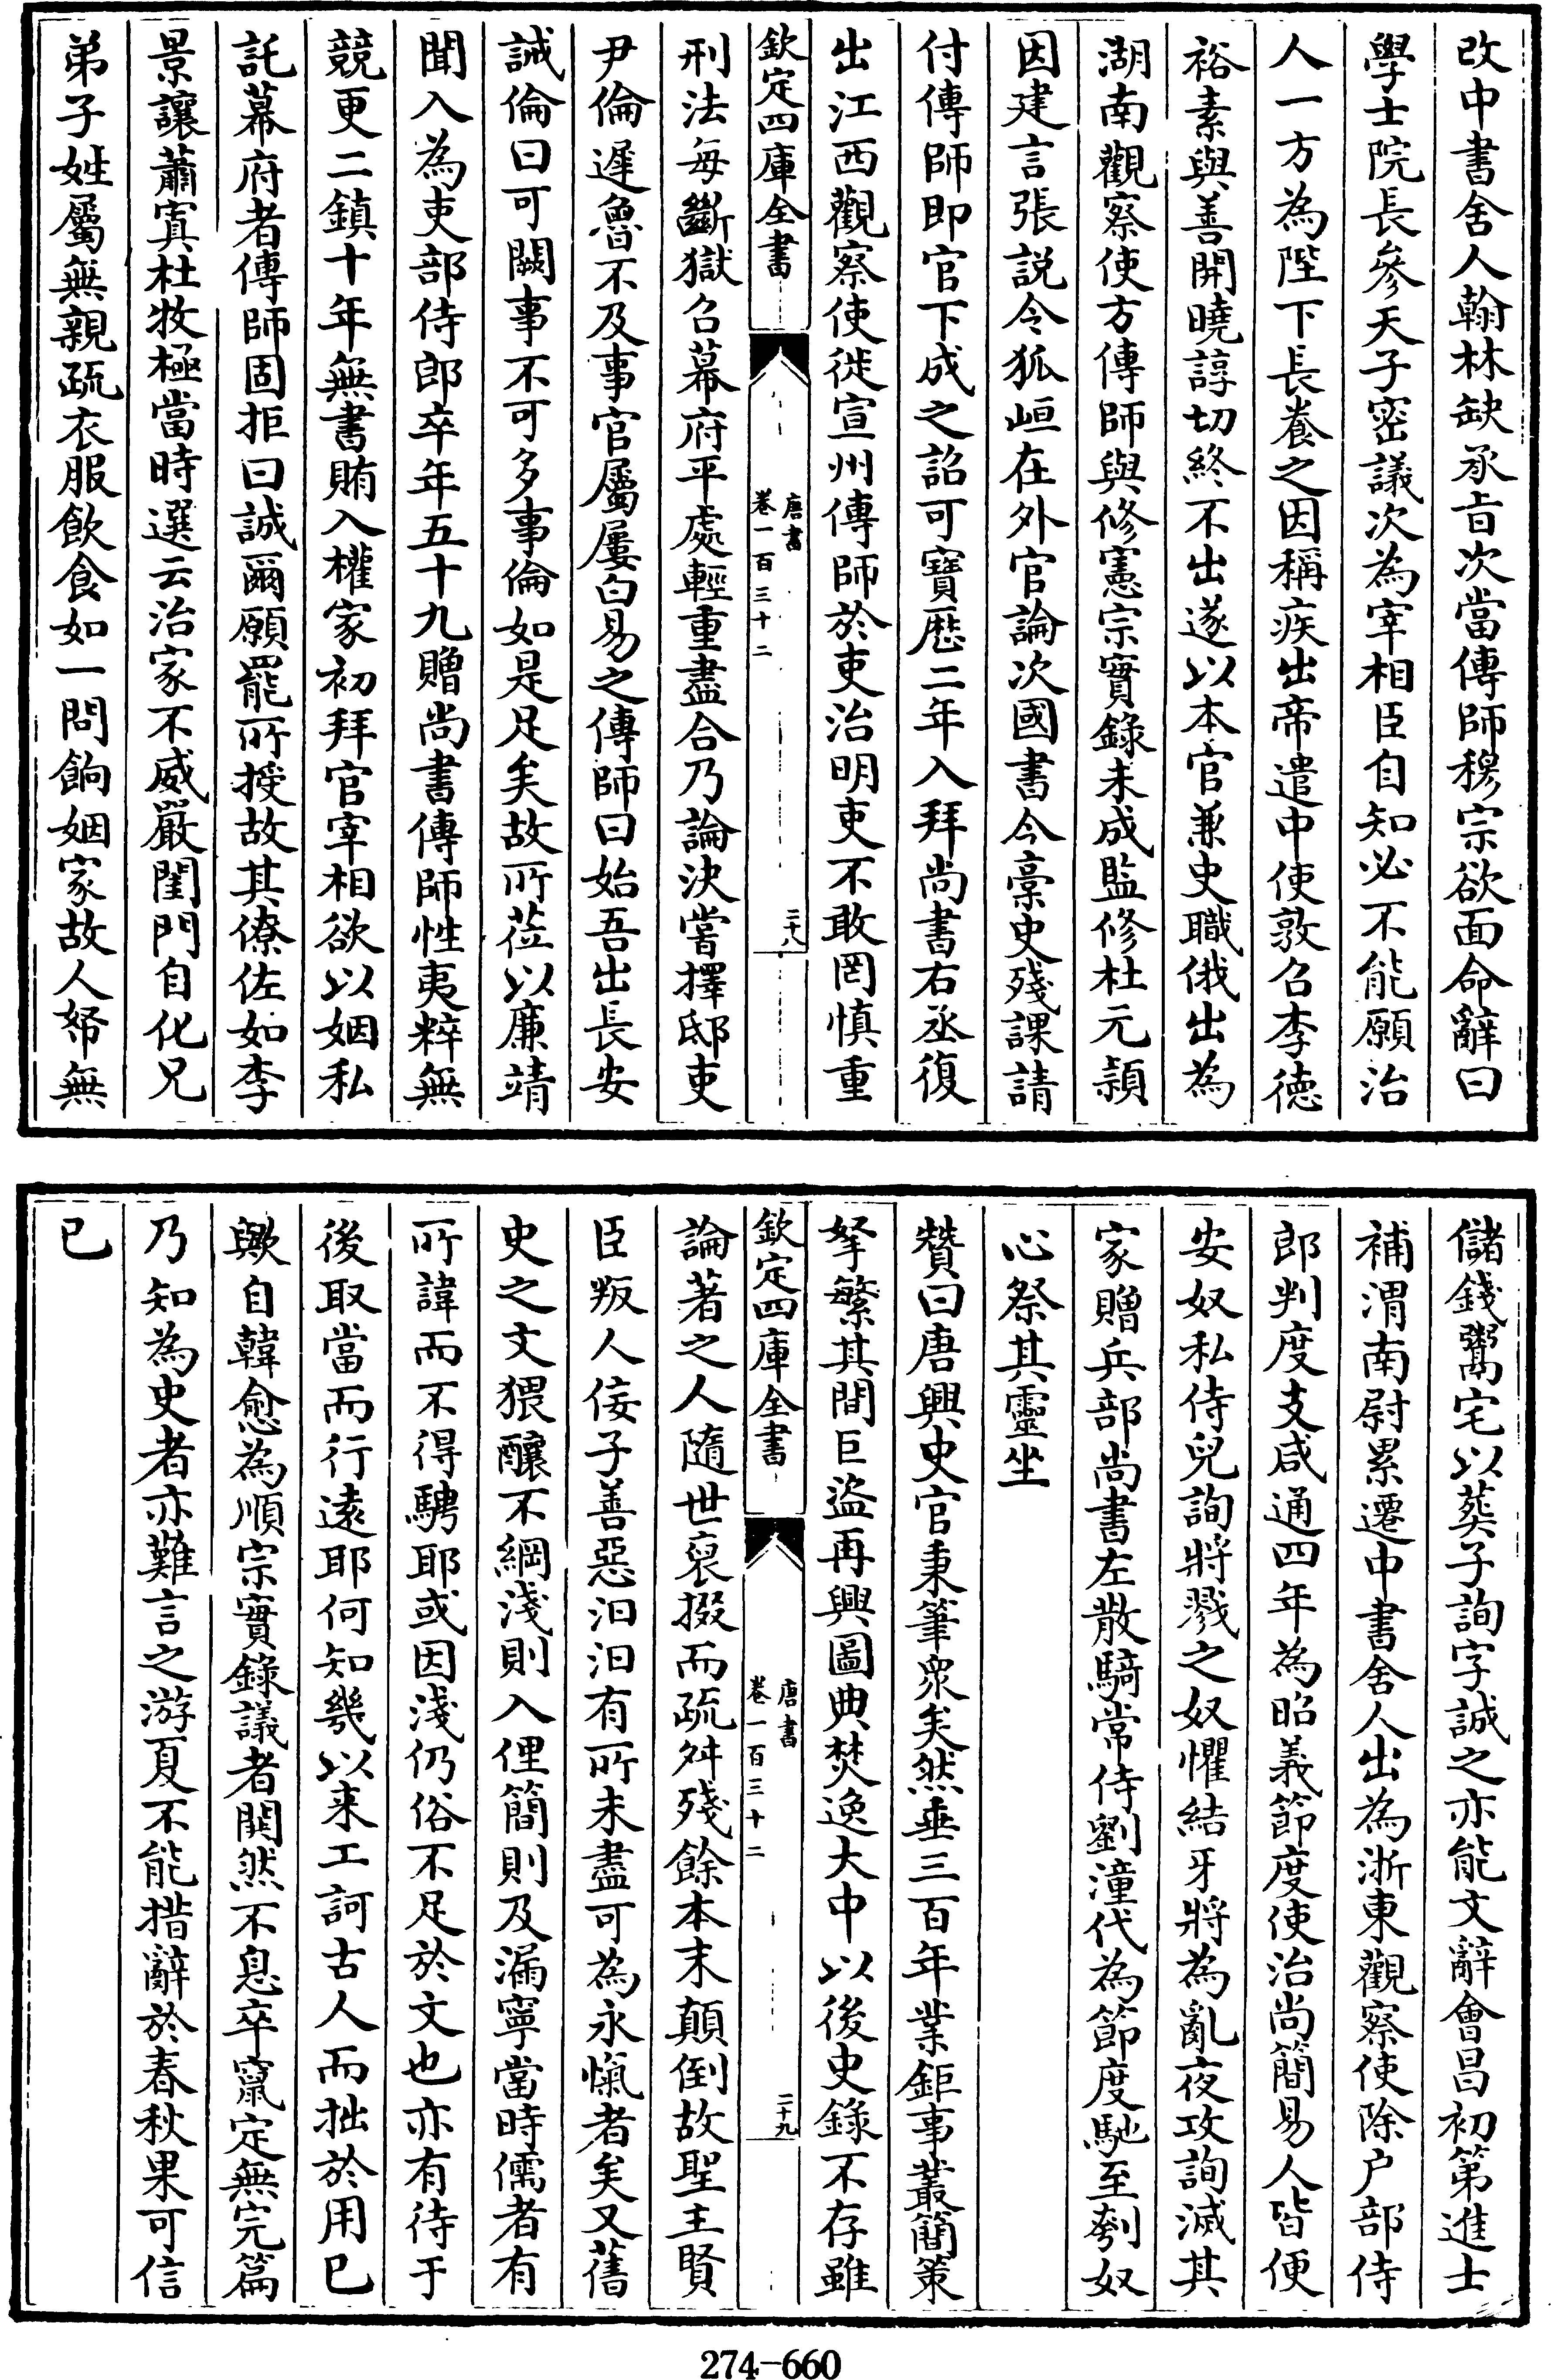 改中書舍人翰林缺承㫖次當傳師穆宗欲面命辭曰
學士院長參天子密議次為宰相臣自知必不能願治
人一方為陛下長養之因稱疾出帝遣中使敦召李德
裕素與善開曉諄切終不出遂以本官兼史職俄出為
湖南觀察使方傳師與修憲宗實錄未成監修杜元頴
因建言張説令狐峘在外官論次國書今槀史殘課請
付傳師即官下成之詔可寶厯二年入拜尚書右丞復
出江西觀察使徙宣州傳師於吏治明吏不敢罔慎重
欽定四庫全書
唐書
卷一百三十二
二十八
刑法每斷獄召幕府平處輕重盡合乃論決嘗擇邸吏
尹倫遲魯不及事官屬屢白易之傳師曰始吾出長安
誡倫曰可闕事不可多事倫如是足矣故所莅以廉靖
聞入為吏部侍郎卒年五十九贈尚書傳師性夷粹無
競更二鎮十年無書賄入權家初拜官宰相欲以姻私
託幕府者傳師固拒曰誠爾願罷所授故其僚佐如李
景讓蕭寘杜牧極當時選云治家不威嚴閨門自化兄
弟子姓屬無親疏衣服飲食如一問餉姻家故人帑無
儲錢鬻宅以葬子詢字誠之亦能文辭會昌初第進士
補渭南尉累遷中書舍人出為浙東觀察使除户部侍
郎判度支咸通四年為昭義節度使治尚簡易人皆便
安奴私侍兒詢將戮之奴懼結牙將為亂夜攻詢滅其
家贈兵部尚書左散騎常侍劉潼代為節度馳至刳奴
心祭其靈坐
贊曰唐興史官秉筆衆矣然垂三百年業鉅事叢簡策
挐繁其間巨盜再興圖典焚逸大中以後史錄不存雖
欽定四庫全書
唐書
卷一百三十二
二十九
論著之人隨世裒掇而疏舛殘餘本末顛倒故聖主賢
臣叛人佞子善惡汩汩有所未盡可為永愾者矣又舊
史之文猥釀不綱淺則入俚簡則及漏寧當時儒者有
所諱而不得騁耶或因淺仍俗不足於文也亦有待于
後取當而行遠耶何知幾以来工訶古人而拙於用已
歟自韓愈為順宗實錄議者閧然不息卒竄定無完篇
乃知為史者亦難言之游夏不能措辭於春秋果可信
已
274-660